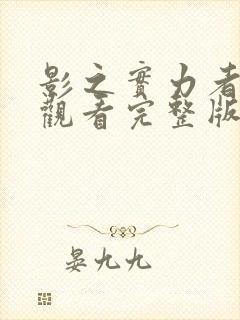 影之實力者
觀看完整版
晏九九